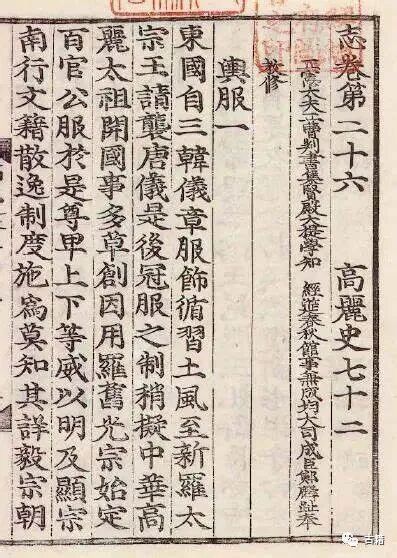 志卷第二十六 高麗史七十二
正憲大夫工曹判書集賢殿大提學知 經筵春秋館事兼成均大司成臣鄭麟趾奉
敎修
輿服一
東國自三韓儀章服飾循習土風至新羅太
宗王請襲唐儀是後冠服之制稍擬中華高
麗太祖開國事多草創因用羅舊光宗始定
百官公服於是尊卑上下等威以明及顯宗
南行文籍散逸制度施爲莫知其詳毅宗朝
古籍